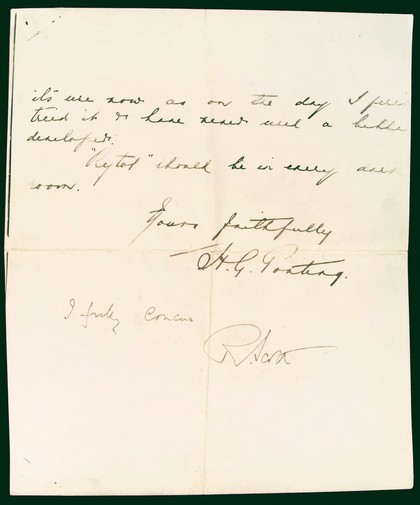 its use now as on the day I first
tried it & have never used a better
developer.
"Rytol" should be in every dark
room.
Yours faithfully
H. G. Ponting.
I fully concur
R. Scott